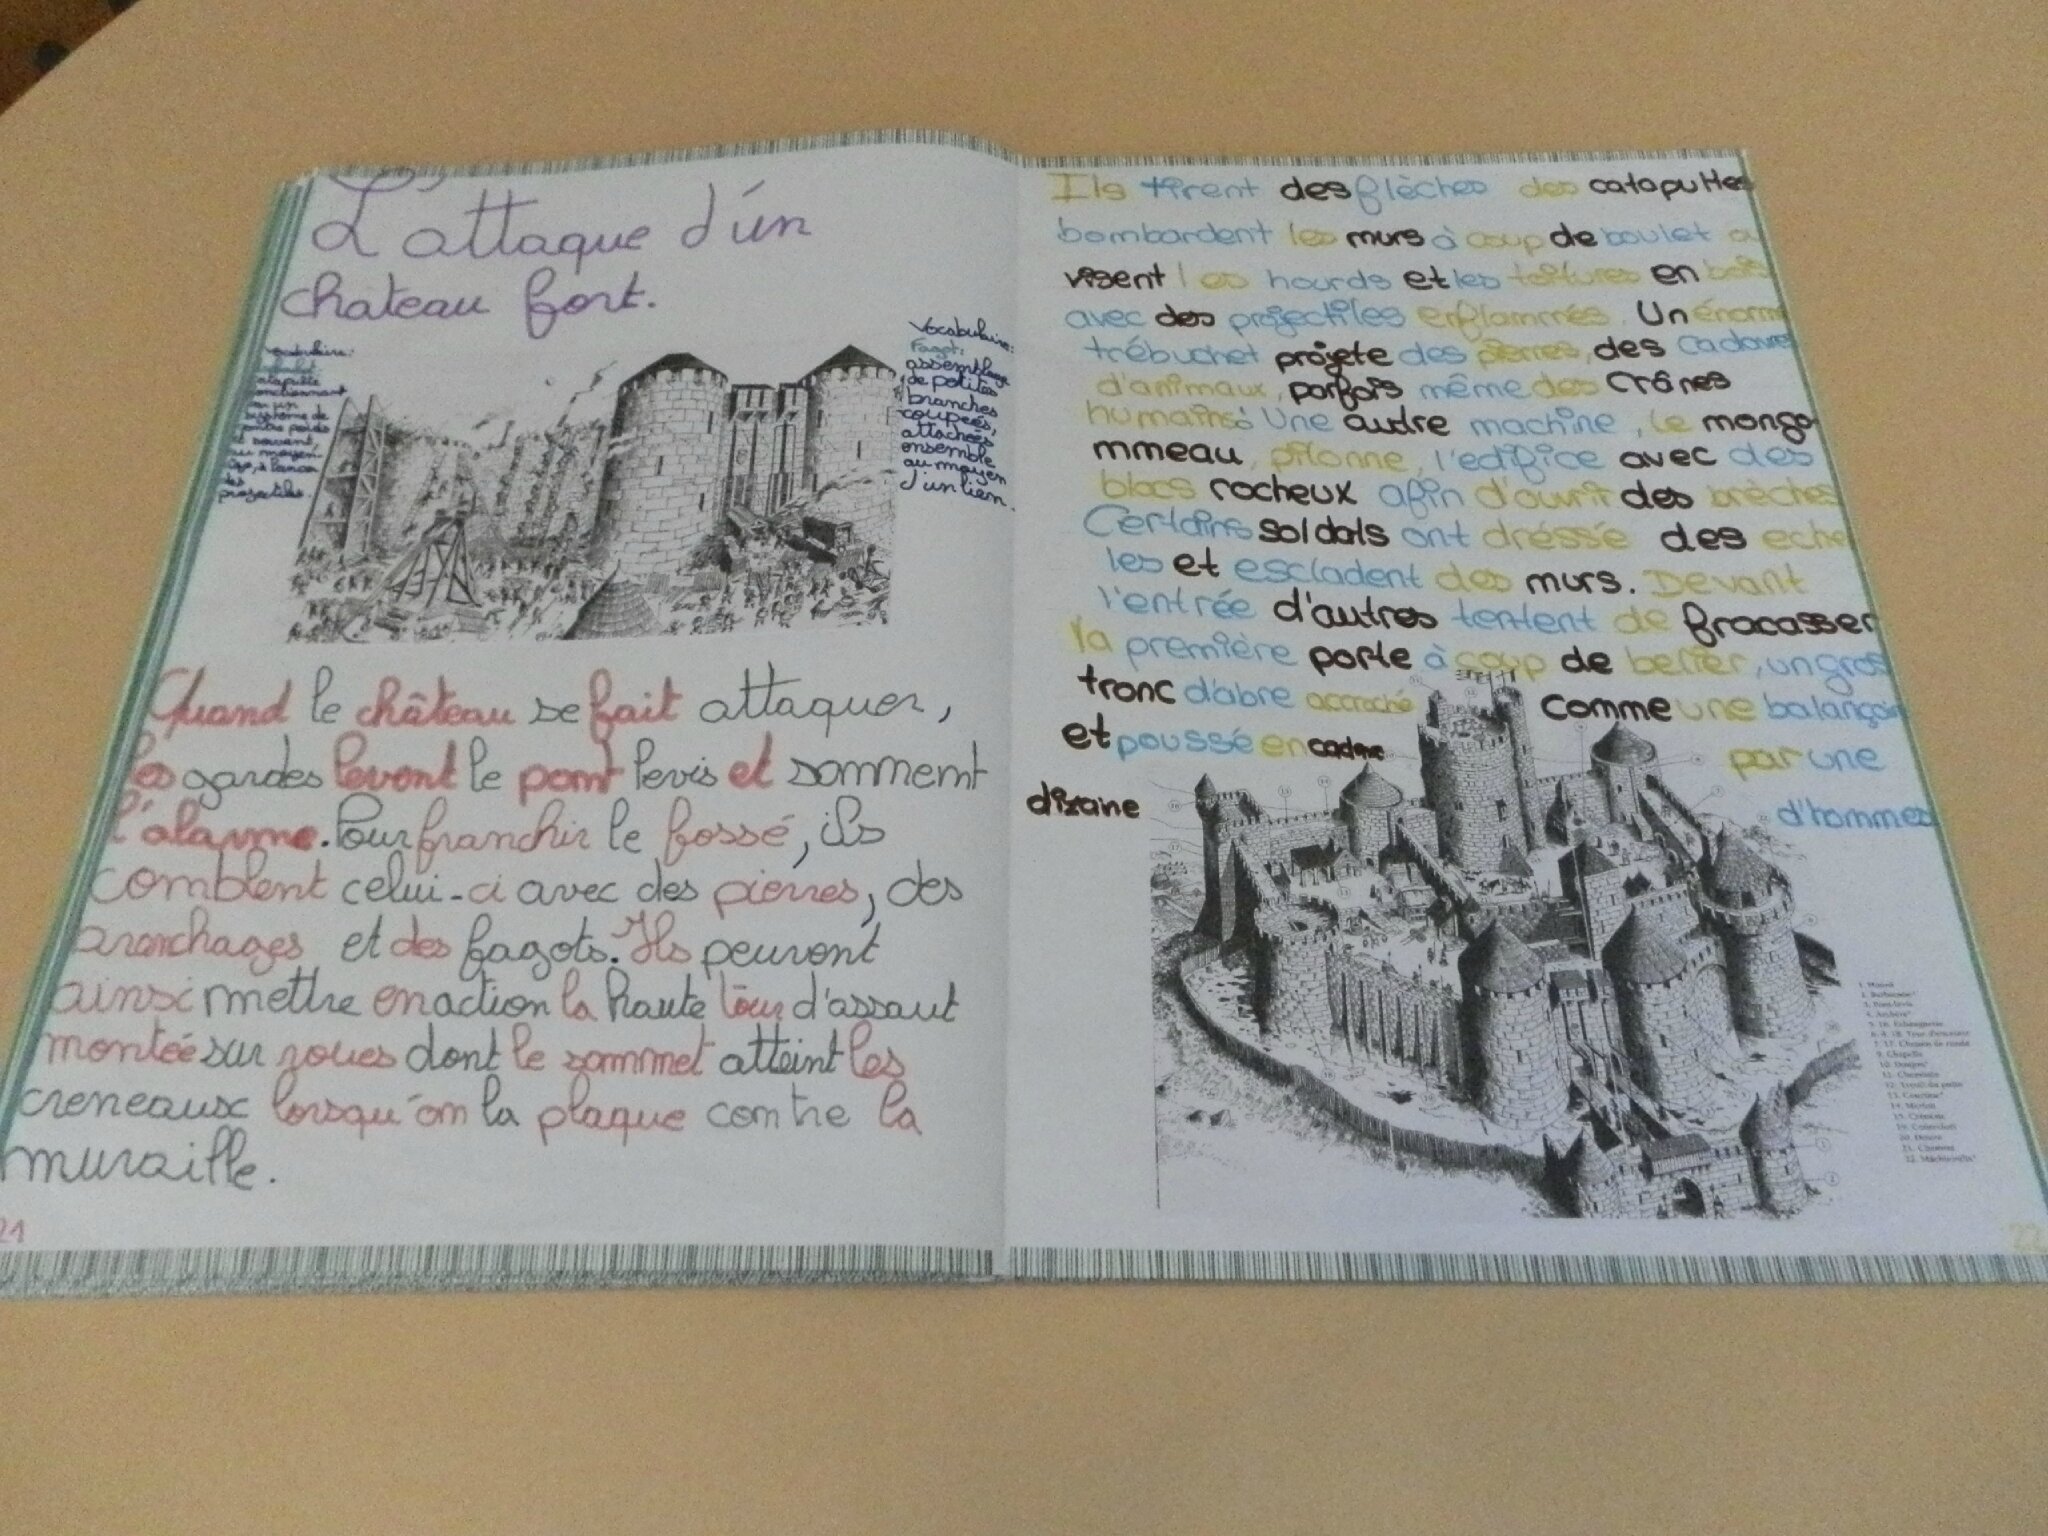 L'attaque d'un
château fort.
Vocabulaire:
catapulte
fonctionnant
système de
contre poids
et souvent,
au moyen-
âge, à lancer
des
projectiles.
Vocabulaire:
Fagot:
assemblage
de petites
branches
coupées,
attachées
ensemble
au moyen
d'un lien.
Quand le château se fait attaquer,
les gardes levent le pont levis et sonnemt
l'alarme. Pour franchir le fossé, ils
comblent celui-ci avec des pierres, des
branchages et des fagots. Ils peuvent
ainsi mettre en action la haute tour d'assaut
montée sur roues dont le sommet atteint les
creneaux lorsqu'on la plaque contre la
muraille.
21
Ils tirent des flèches des catapultes
bombardent les murs à coup de boulet
visent les hourds et les toitures en bois
avec des projectiles enflammés. Un énorme
trébuchet projete des pierres, des cadavre
d'animaux, parfois même des crânes
humains! Une autre machine, le mongo
mmeau, pilonne, l'edifice avec des
blocs rocheux afin d'ouvrir des brèches
Certains soldats ont dréssé des eche
les et escladent des murs. Devant
l'entrée d'autres tentent de fracasser
la première porte à coup de belier, un gros
tronc d'abre accroché comme une balançoi
et poussé en cadne par une
dizaine d'hommes
4. Archère*
9. Chapelle
10. Donjon*
14. Merlon
15. Créneau
22. Mâchicoulis*
22